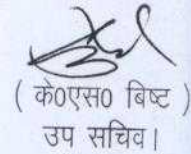 ( के०एस० बिष्ट )
उप सचिव।